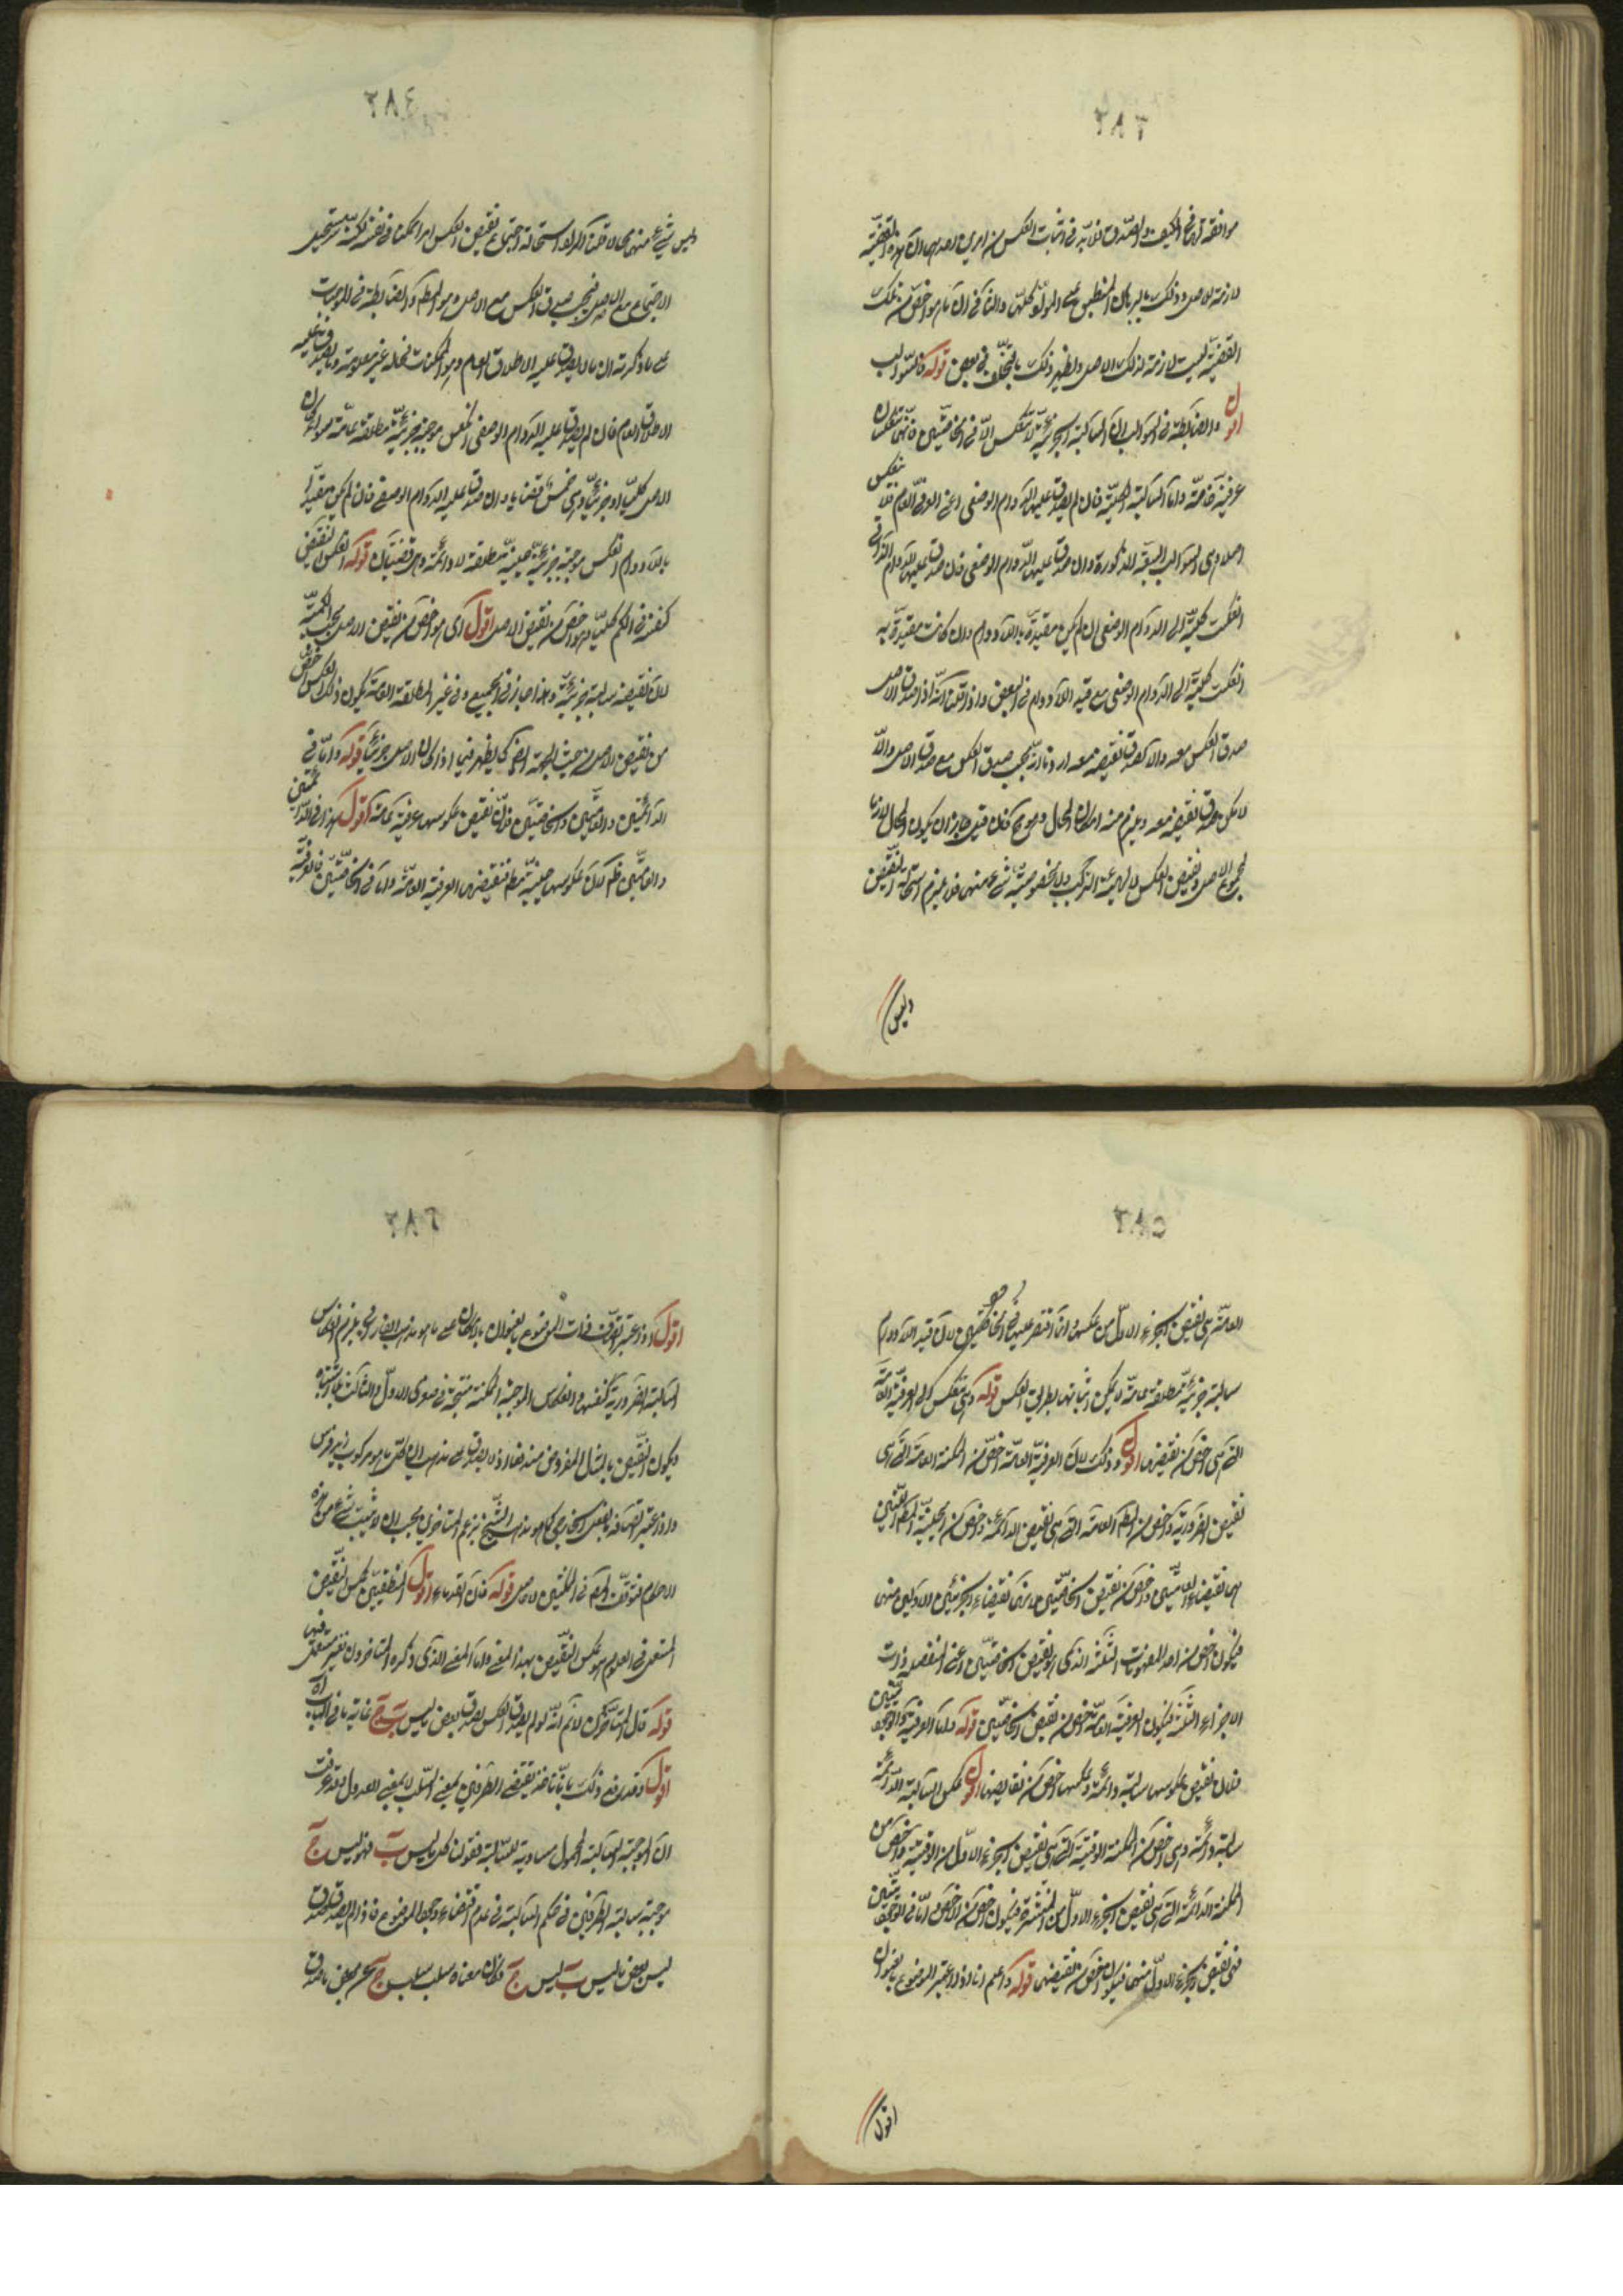 ٣٨٣
موافقة لها في الكيف والصدق فلابد في اثبات العكس من امرين احدهما ان هذه القضية
لازمة للاصل وذلك بالبرهان المنطبق على المواد كلها والثاني ان ما هو اخص من تلك
القضية ليست لازمة لذلك الاصل ويظهر ذلك بالتخلف في بعض قوله فالسوالب
اقول والضابطة في السوالب ان السالبة الجزئية لا تنعكس الا في الخاصتين فانهما تنعكسان
عرفية خاصة واما السالبة الكلية فان لم يصدق عليها الدوام الوصفي اعني العرفي العام فلا ينعكس
اصلا وهي السوالب السبعة المذكورة وان صدق عليها الدوام الوصفي فان صدق عليها الدوام الذاتي
انعكست كلية الى الدوام الوصفي ان لم يكن مقيدة باللادوام وان كانت مقيدة به
انعكست كلية الى الدوام الوصفي مع قيد اللادوام في البعض واذا قلنا انه اذا صدق الاصل
صدق العكس معه والا لصدق نقيضه معه اردنا انه يجب صدق العكس مع صدق الاصل والا
لامكن صدق نقيضه معه ويلزم منه امكان المحال وهو مح فان قيل جاز ان يكون المحال لازما
لمجموع الاصل ونقيض العكس اي لهيئة التركيب ولا بخصوصية شيء منهما فلا يلزم استحالة النقيض
وليس
٣٨٤
وليس شيء منهما محالا قلنا المراد استحالة اجتماع نقيض العكس امرا ممكنا في نفسه لكنه يستحيل
الاجتماع مع الاصل فيجب صدق العكس مع الاصل وهو المط والضابطة في الموجبات
على ما ذكرته ان ما لا يصدق عليه الاطلاق العام وهو الممكنات فحاله غير معلومة وما يصدق عليه
الاطلاق العام فان لم يصدق عليه الدوام الوصفي انعكس موجبة جزئية مطلقة عامة سواء كان
الاصل كليا او جزئيا وهي خمس قضايا وان صدق عليه الدوام الوصفي فان لم يكن مقيدا
باللادوام انعكس موجبة جزئية حينية مطلقة لا دائمة وهي قضيتان قوله انعكس النقيض
كنفسه في الكم كليا وهو اخص من نقيض الاصل اقول اي هو اخص من نقيض الاصل بحسب الكمية
لان نقيضه سالبة جزئية وهذا جاز في الجميع وفي غير المطلقة العامة يكون ذلك العكس اخص
من نقيض الاصل من حيث الجهة ايضا كما يظهر فيما اذا كان الاصل جزئيا قوله واما في
الدائمتين والعامتين والخاصتين فلان نقيض عكوسها عرفية عامة اقول هذا في الدائمتين
والعامتين ظ لان عكوسها حينية مط فنقيضها العرفية العامة واما في الخاصتين فالعرفية
٣٨٥
العامة هي نقيض الجزء الاول من عكسهما وانما اقتصر عليها في الخاصتين لان قيد اللادوام
سالبة جزئية مطلقة عامة لا يمكن اثباتها بطريق العكس قوله وهي تنعكس الى العرفية العامة
التي هي اخص من نقيضها اقول وذلك لان العرفية العامة اخص من الممكنة العامة التي هي
نقيض الضرورية واخص من المط العامة التي هي نقيض الدائمة واخص من الحينيتين اللتين
هما نقيضا العامتين واخص من نقيض الخاصتين من نقيضاء الجزئيين الاولين منهما
فيكون اخص من احد المفهومات الثلثة الذي هو نقيض الخاصتين اعني المنفصلة ذات
الاجزاء الثلثة فيكون العرفية العامة اخص من نقيض الخاصتين قوله واما العرفية في الوقتيتين
فلان نقيض عكوسها سالبة دائمة وعكسها اخص من نقايضها اقول عكس السالبة الدائمة
سالبة دائمة وهي اخص من الممكنة الوقتية التي هي نقيض الجزء الاول من الوقتية واخص من
الممكنة الدائمة التي هي نقيض الجزء الاول من المنتشرة فيكون اخص من الاخص واما في الوقتيتين
فهي نقيض الجزء الاول منهما فيكون اخص من نقيضها قوله واعلم انا اذا اعتبر الموضوع بالعنوان
اقول
٣٨٦
اقول اذا اعتبر اتصاف ذات الموضوع بالعنوان بالامكان على ما هو مذهب الفارابي يلزم انعكاس
السالبة الضرورية كنفسها وانعكاس الموجبة الممكنة منتجة في صغرى الاول والثالث بلا اشتباه
ويكون النقيض بالمثال المفروض مندفعا اذ لا يصدق على مذهبه ان كل ما هو مركوب زيد فرس
واذا اعتبر اتصافه بالفعل الخارجي كما هو مذهب الشيخ بزعم المتأخرين يجب ان لا يثبت شيء من هذه
الاحكام فتوقف المص في المكنتين لا محالة قوله فان القدماء اقول المنطقيين لعكس النقيض
المستعمل في العلوم هو عكس النقيض بهذا المعنى واما المعنى الذي ذكره المتأخرون فغير مستعمل فيها
قوله قال المتأخرون لانم انه لو لم يصدق العكس لصدق بعض ما ليس ب ج غاية ما في الباب ان
اقول وقد دفع ذلك بانا ناخذ نقيضي الطرفين بمعنى السلب لا بمعنى العدول وقد عرفت
ان الموجبة السالبة المحمول مساوية للسالبة فقولنا كل ما ليس ب فهو ليس ج
موجبة سالبة الطرفين في حكم السالبة في عدم اقتضاء وجود الموضوع فاذا لم يصدق لصدق
ليس بعض ما ليس ب ليس ج فكان معناه سلب سلب ج عن بعض ما صدق